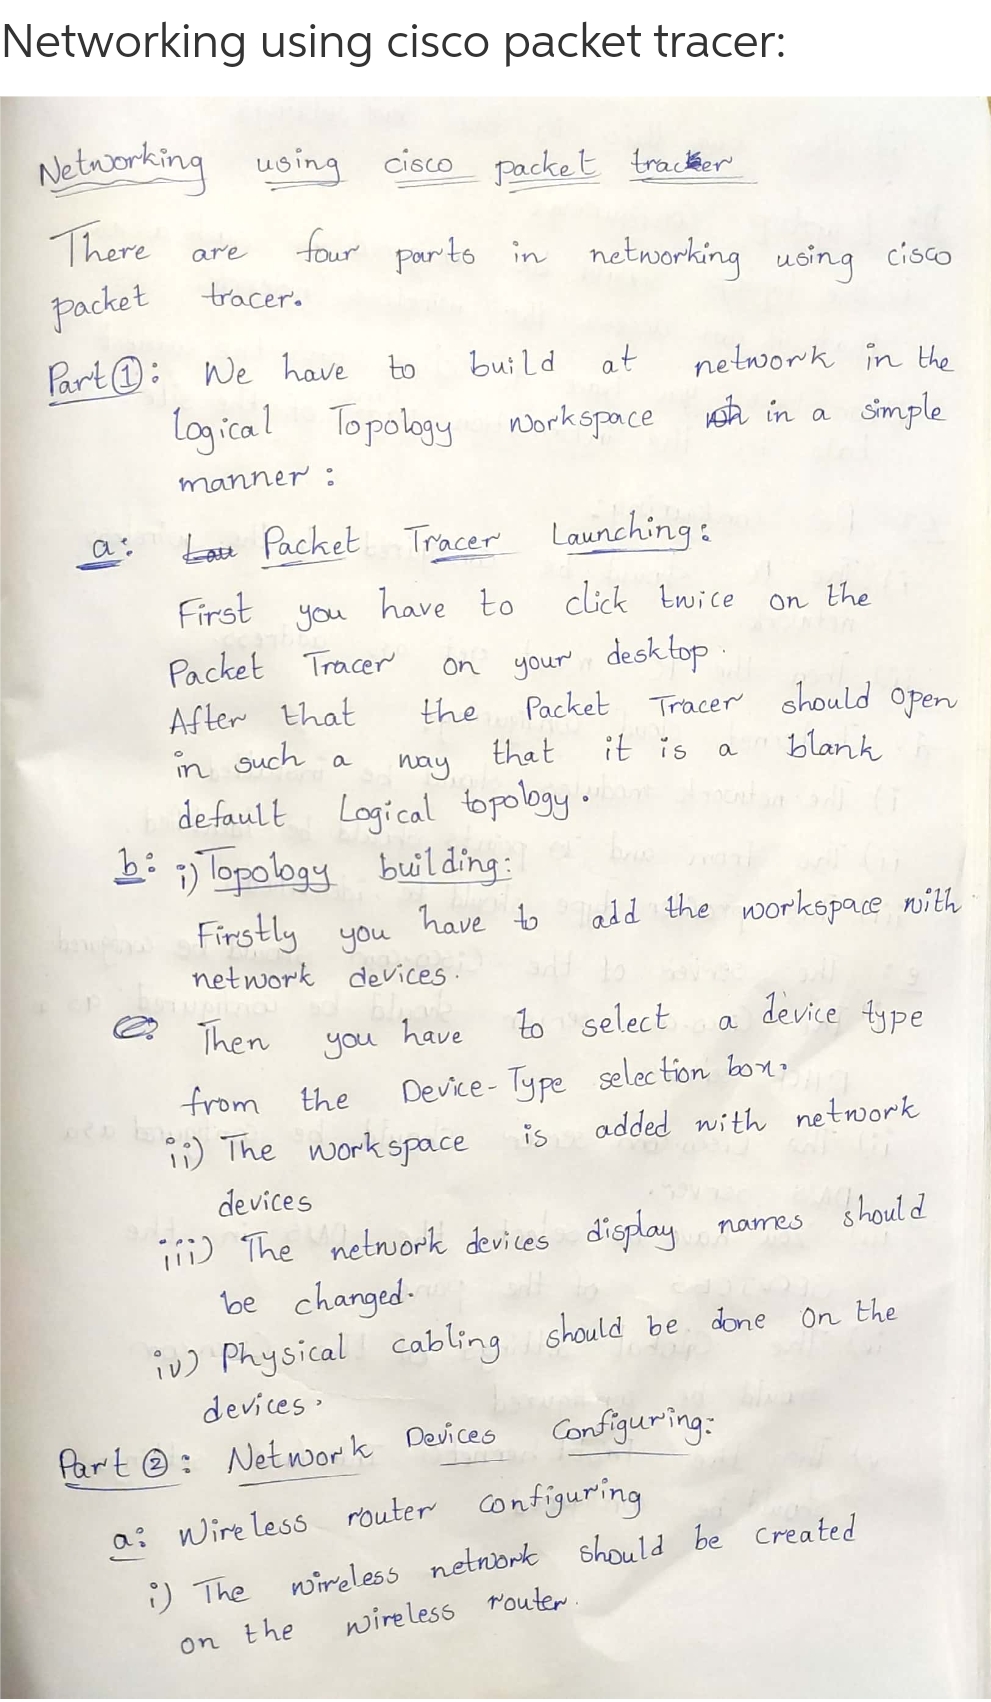 Networking using cisco packet tracer:
Networking using cisco packet tracker
There are four parts in networking using cisco
packet tracer.
Part ①: We have to build at network in the
Logical Topology workspace in a simple
manner :
a: Packet Tracer Launching:
First you have to click twice on the
Packet Tracer on your desktop.
After that the Packet Tracer should open
in such a way that it is a blank
default Logical topology.
b: i) Topology building:
Firstly you have to add the workspace with
network devices.
Then you have to select a device type
from the Device-Type selection box.
ii) The workspace is added with network
devices
iii) The network devices display names should
be changed.
iv) Physical cabling should be done on the
devices.
Part ②: Network Devices Configuring:
a: Wireless router configuring
i) The wireless network should be created
on the wireless router.